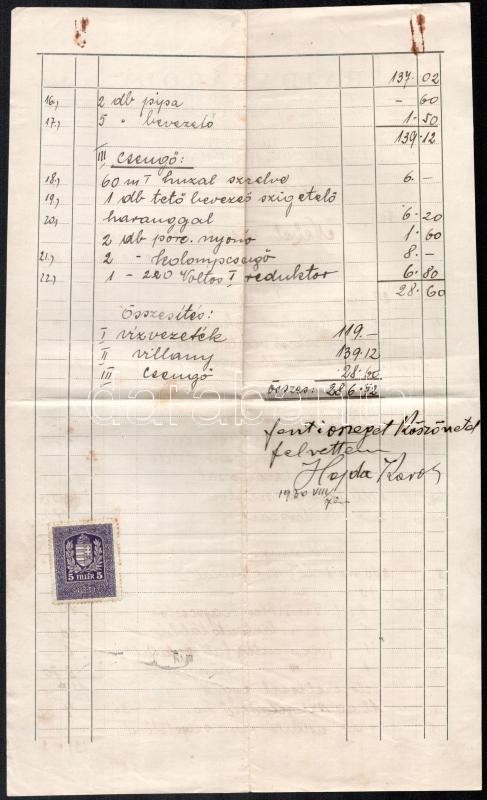 137.02
16.) 2 db pipa –.60
17.) 5 " bevezető 1.50
139.12
III csengő:
18.) 60 m I huzal szerelve 6.–
19.) 1 db tető bevezés szigetelő
20.) haranggal 6.20
2 db porc. nyomó 1.60
21.) 2 " kolompcsengő 8.–
22.) 1 – 220 Voltos I reduktor 6.80
28.60
Összesítés:
I vízvezeték 119.–
II villany 139.12
III csengő 28.60
összes: 286.72
fenti összeget Köszönettel
felvettem
Hajda Károly
1930 VIII
5 FILLÉR 5